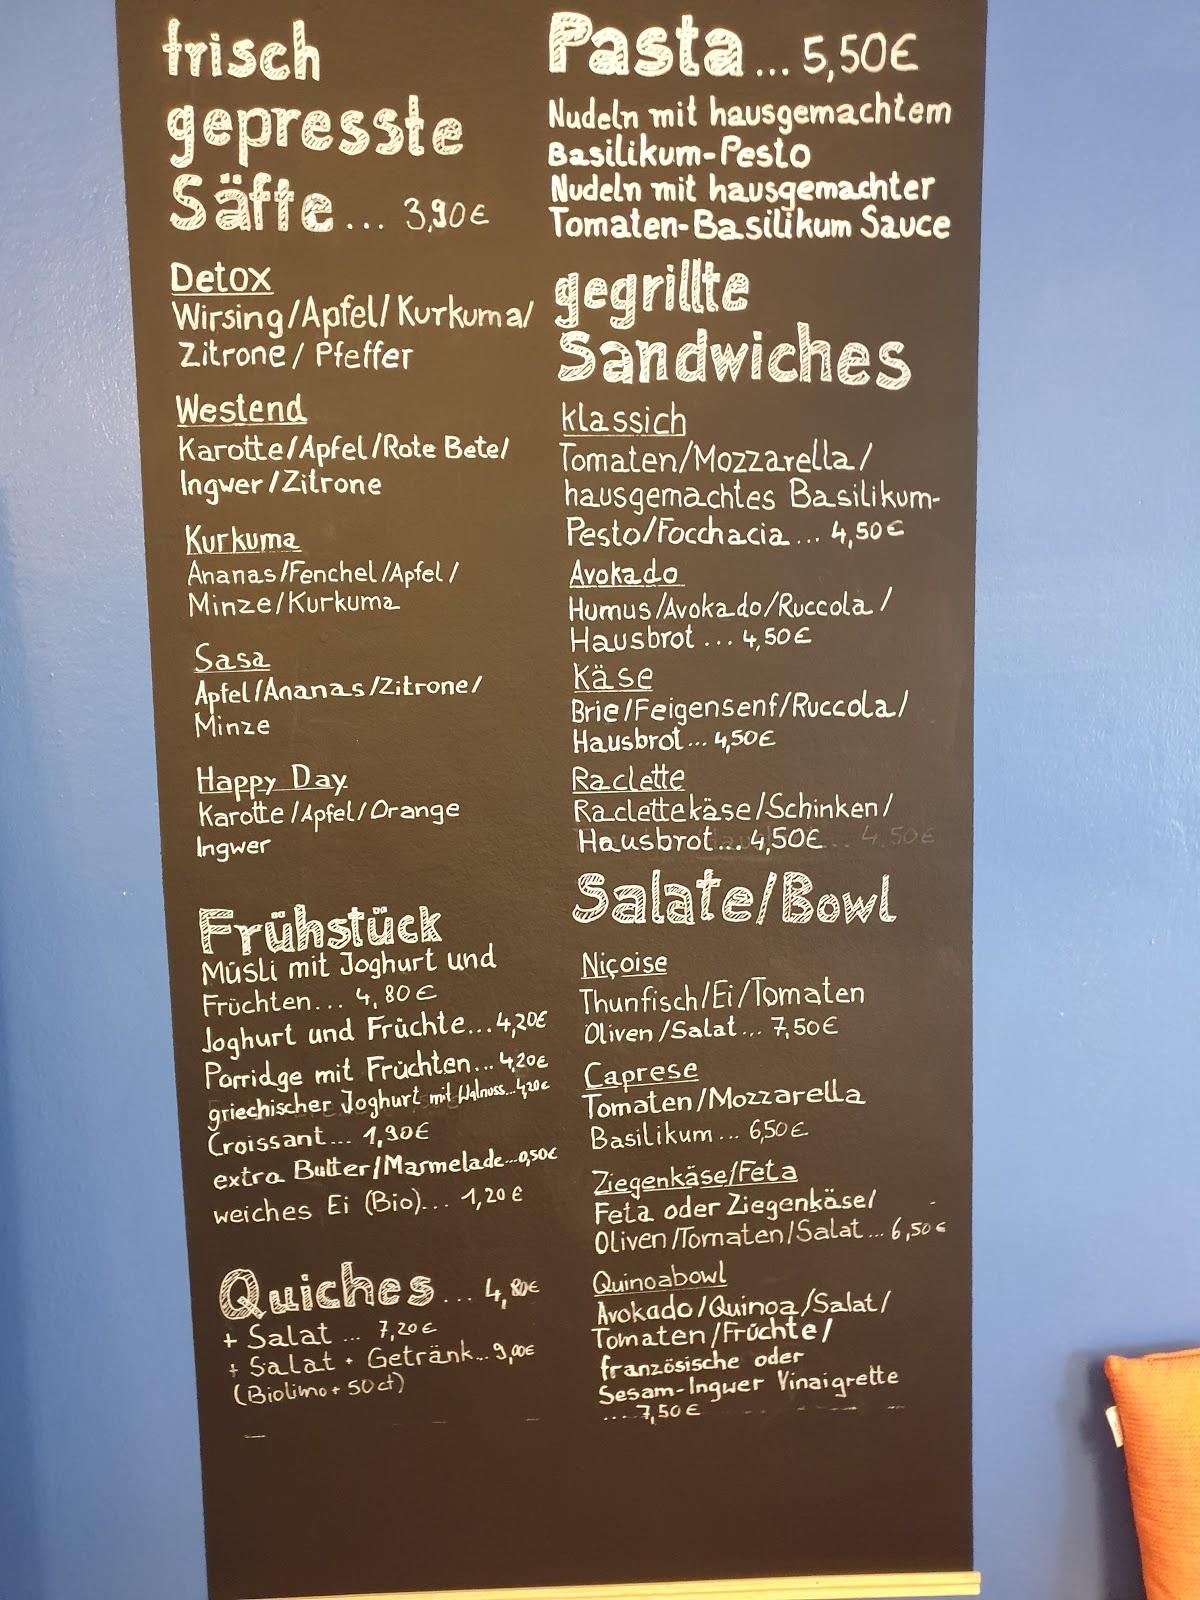 frisch
gepresste
Säfte... 3,90€
Detox
Wirsing/Apfel/Kurkuma/
Zitrone/ Pfeffer
Westend
Karotte/Apfel/Rote Bete/
Ingwer/Zitrone
Kurkuma
Ananas/Fenchel/Apfel/
Minze/Kurkuma
Sasa
Apfel/Ananas/Zitrone/
Minze
Happy Day
Karotte/Apfel/Orange
Ingwer
Frühstück
Müsli mit Joghurt und
Früchten... 4,80€
Joghurt und Früchte...4,20€
Porridge mit Früchten...4,20€
griechischer Joghurt mit Walnuss...4,20€
Croissant... 1,90€
extra Butter/Marmelade...0,50€
weiches Ei (Bio)... 1,20€
Quiches... 4,80€
+ Salat ... 7,20€
+ Salat + Getränk...9,00€
(Biolimo+ 50ct)
Pasta... 5,50€
Nudeln mit hausgemachtem
Basilikum-Pesto
Nudeln mit hausgemachter
Tomaten-Basilikum Sauce
gegrillte
Sandwiches
klassich
Tomaten/Mozzarella/
hausgemachtes Basilikum-
Pesto/Focchacia... 4,50€
Avokado
Humus/Avokado/Ruccola/
Hausbrot... 4,50€
Käse
Brie/Feigensenf/Ruccola/
Hausbrot... 4,50€
Raclette
Raclettekäse/Schinken/
Hausbrot... 4,50€ ... 4,50€
Salate/Bowl
Niçoise
Thunfisch/Ei/Tomaten
Oliven/Salat... 7,50€
Caprese
Tomaten/Mozzarella
Basilikum... 6,50€
Ziegenkäse/Feta
Feta oder Ziegenkäse/
Oliven/Tomaten/Salat... 6,50€
Quinoabowl
Avokado/Quinoa/Salat/
Tomaten/Früchte/
französische oder
Sesam-Ingwer Vinaigrette
....7,50€